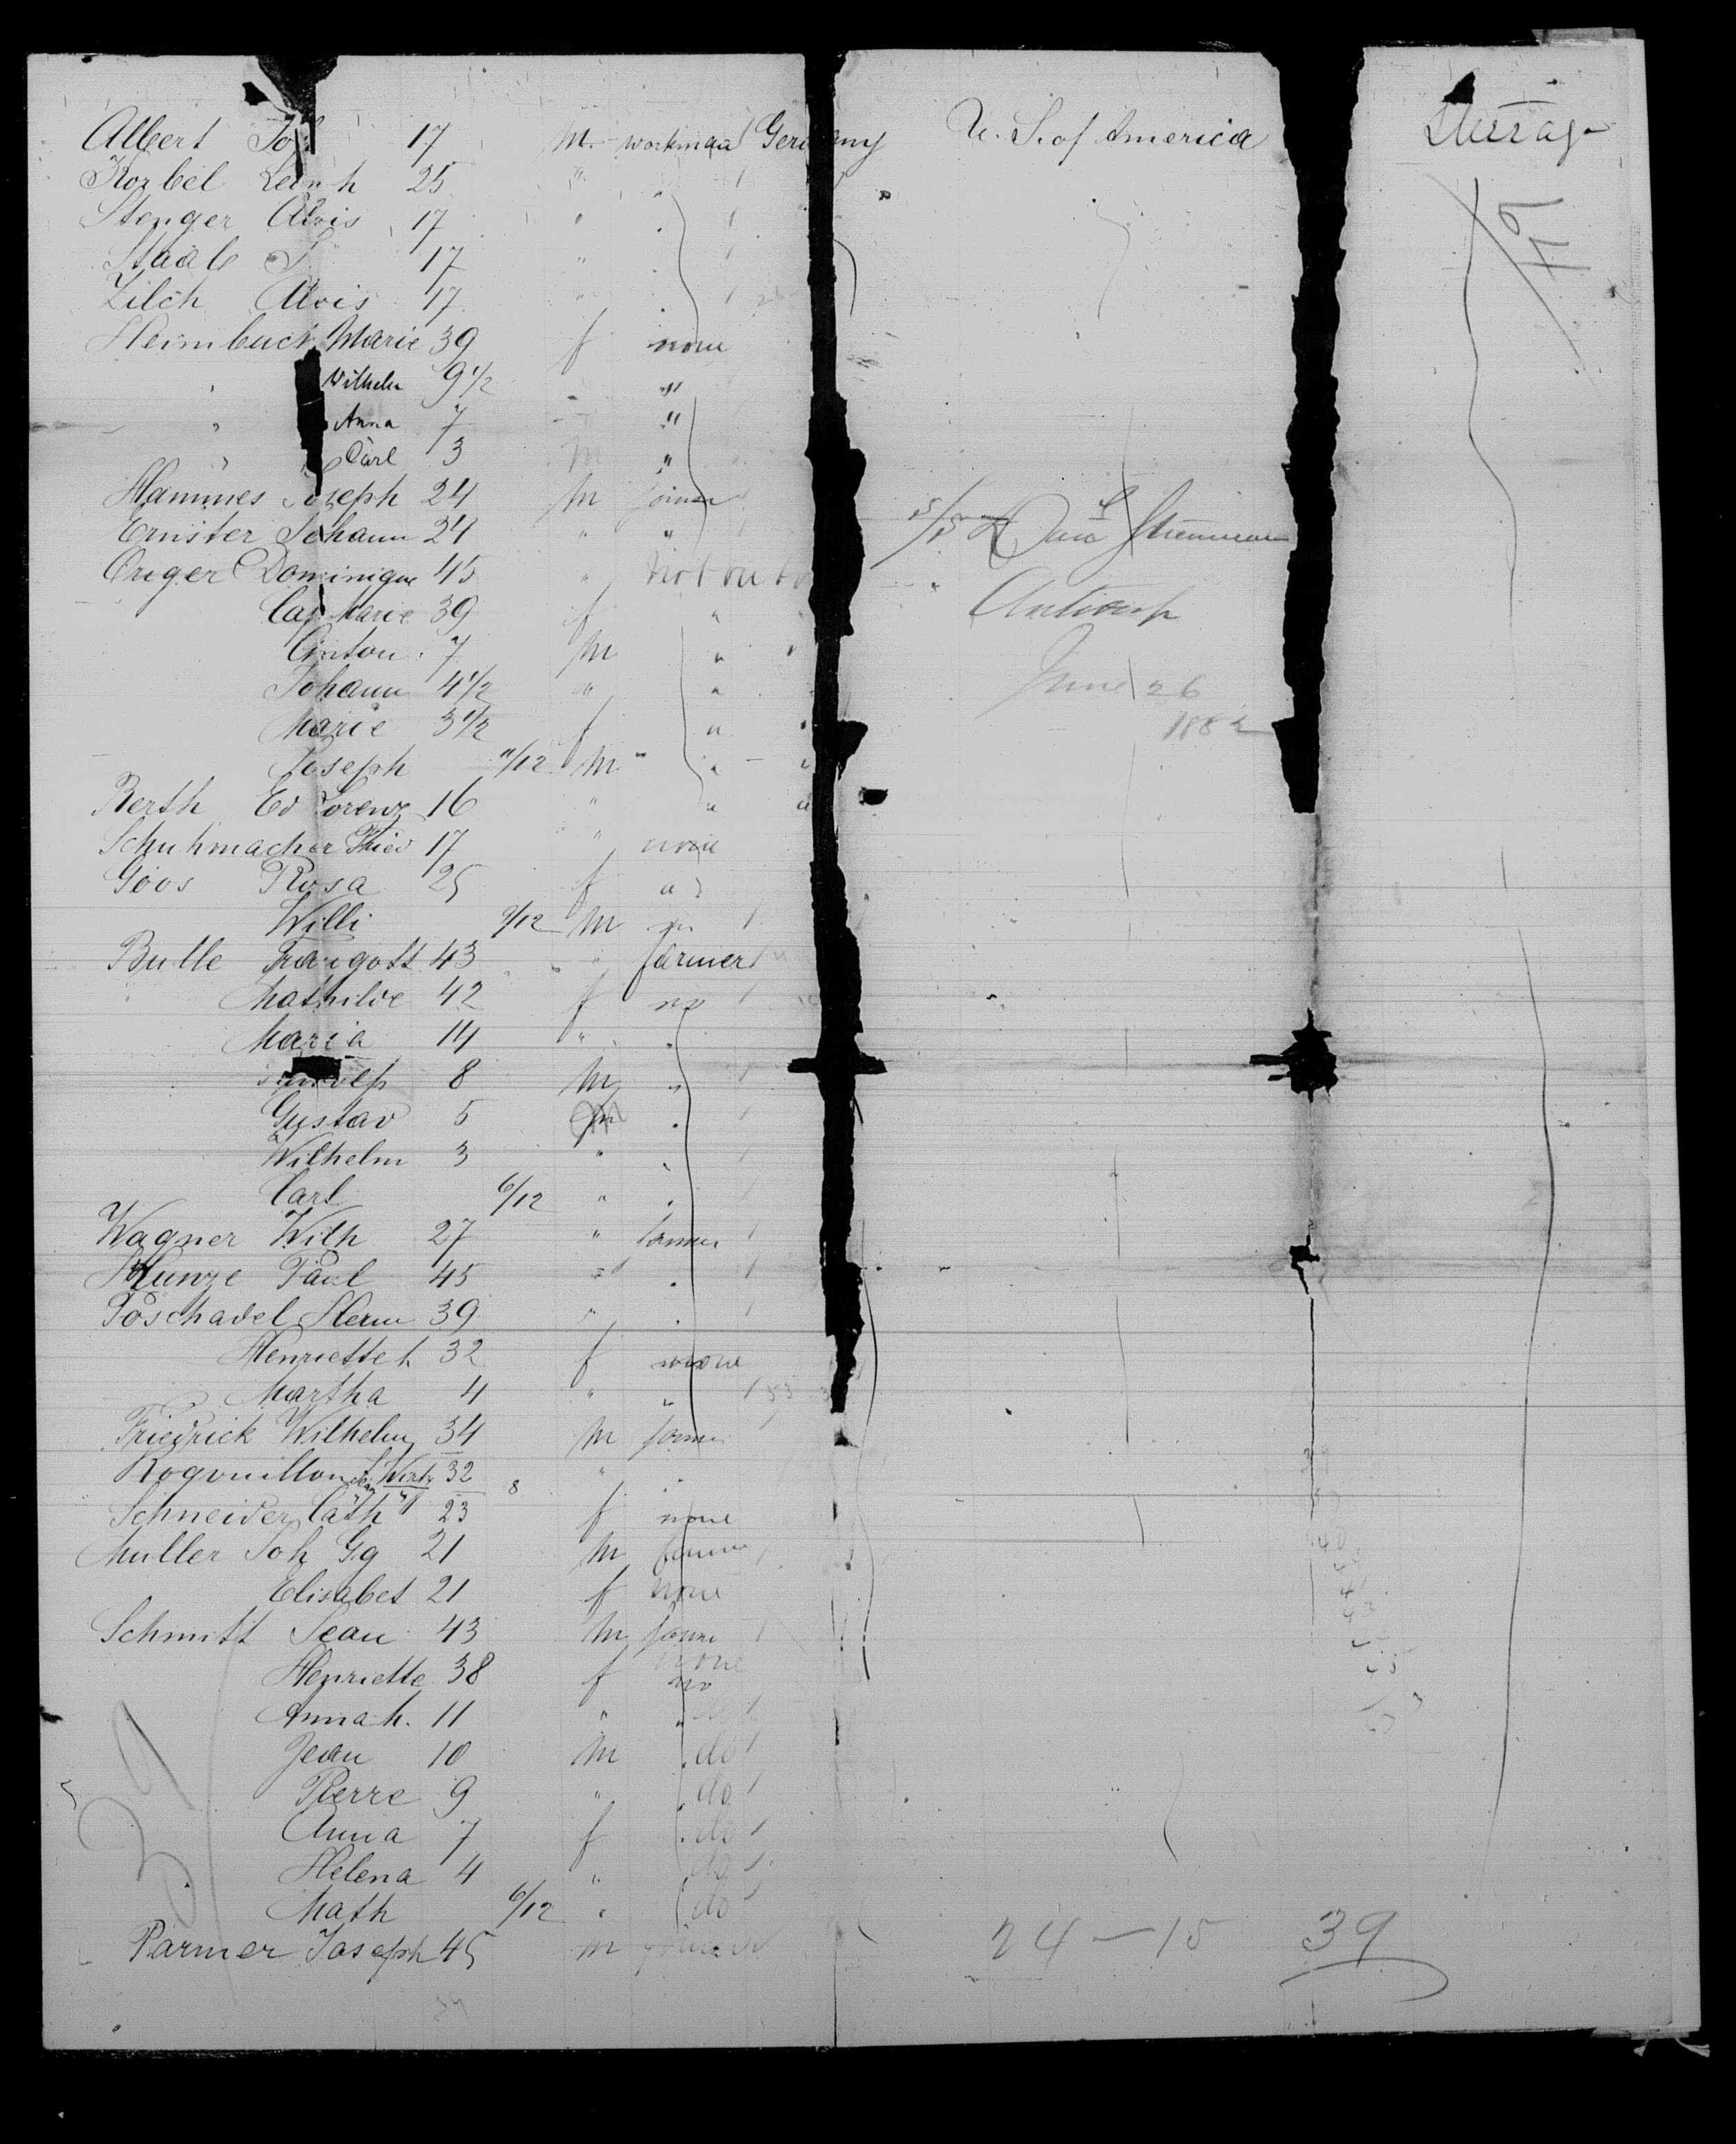 Albert Jos 17 M. workman Germany U. S. of America Steerage
Korbel Leonh 25 " "
Stenger Alois 17 " "
Staab J. 17 " "
Zilch Alois 17 " "
Heimbuch Marie 39 f none
" Wilhelm 9 1/2 "
" Anna 7 "
" Carl 3 M "
Hammes Joseph 24 M joiner
Ernster Johann 24 " "
Criger Dominique 45 " not on bo
Cath Marie 39 f "
Anton 7 M "
Johann 4 1/2 " "
Marie 3 1/2 f "
Joseph 11/12 M "
Antwerp
June 26
1882
Berth Ed Lorenz 16 " "
Schuhmacher Fried 17 " none
Goos Rosa 25 f "
Willi 9/12 M "
Bulle Traugott 43 " farmer
Mathilde 42 f no
Maria 14 " "
8 M "
Gustav 5 M "
Wilhelm 3 " "
Carl 6/12 " "
Wagner Wilh 27 " farmer
Kunze Paul 45 " "
Poschadel Herm 39 " "
Henriette h 32 f none
Martha 4 " "
Friedrick Wilhelm 34 M farmer
Rogouillon 32 " "
Schneider Cath 23 f none
Muller Joh Gg 21 M farmer
Elisabet 21 f none
Schmitt Jean 43 M farmer
Henriette 38 f no
Anna h. 11 " "
Jean 10 M " do
Pierre 9 " " do
Anna 7 f " do
Helena 4 " do
Math 6/12 " do
Parmer Joseph 45 M
24 — 15 39
39